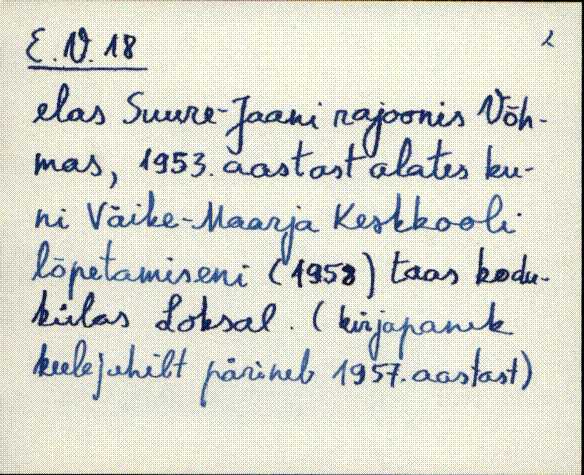 E.V. 18 2
elas Suure-Jaani rajoonis Võh-
mas, 1953. aastast alates ku-
ni Väike-Maarja Keskkooli
lõpetamiseni (1958) taas kodu-
külas Loksal. (kirjapanek
keelejuhilt pärineb 1957. aastast)